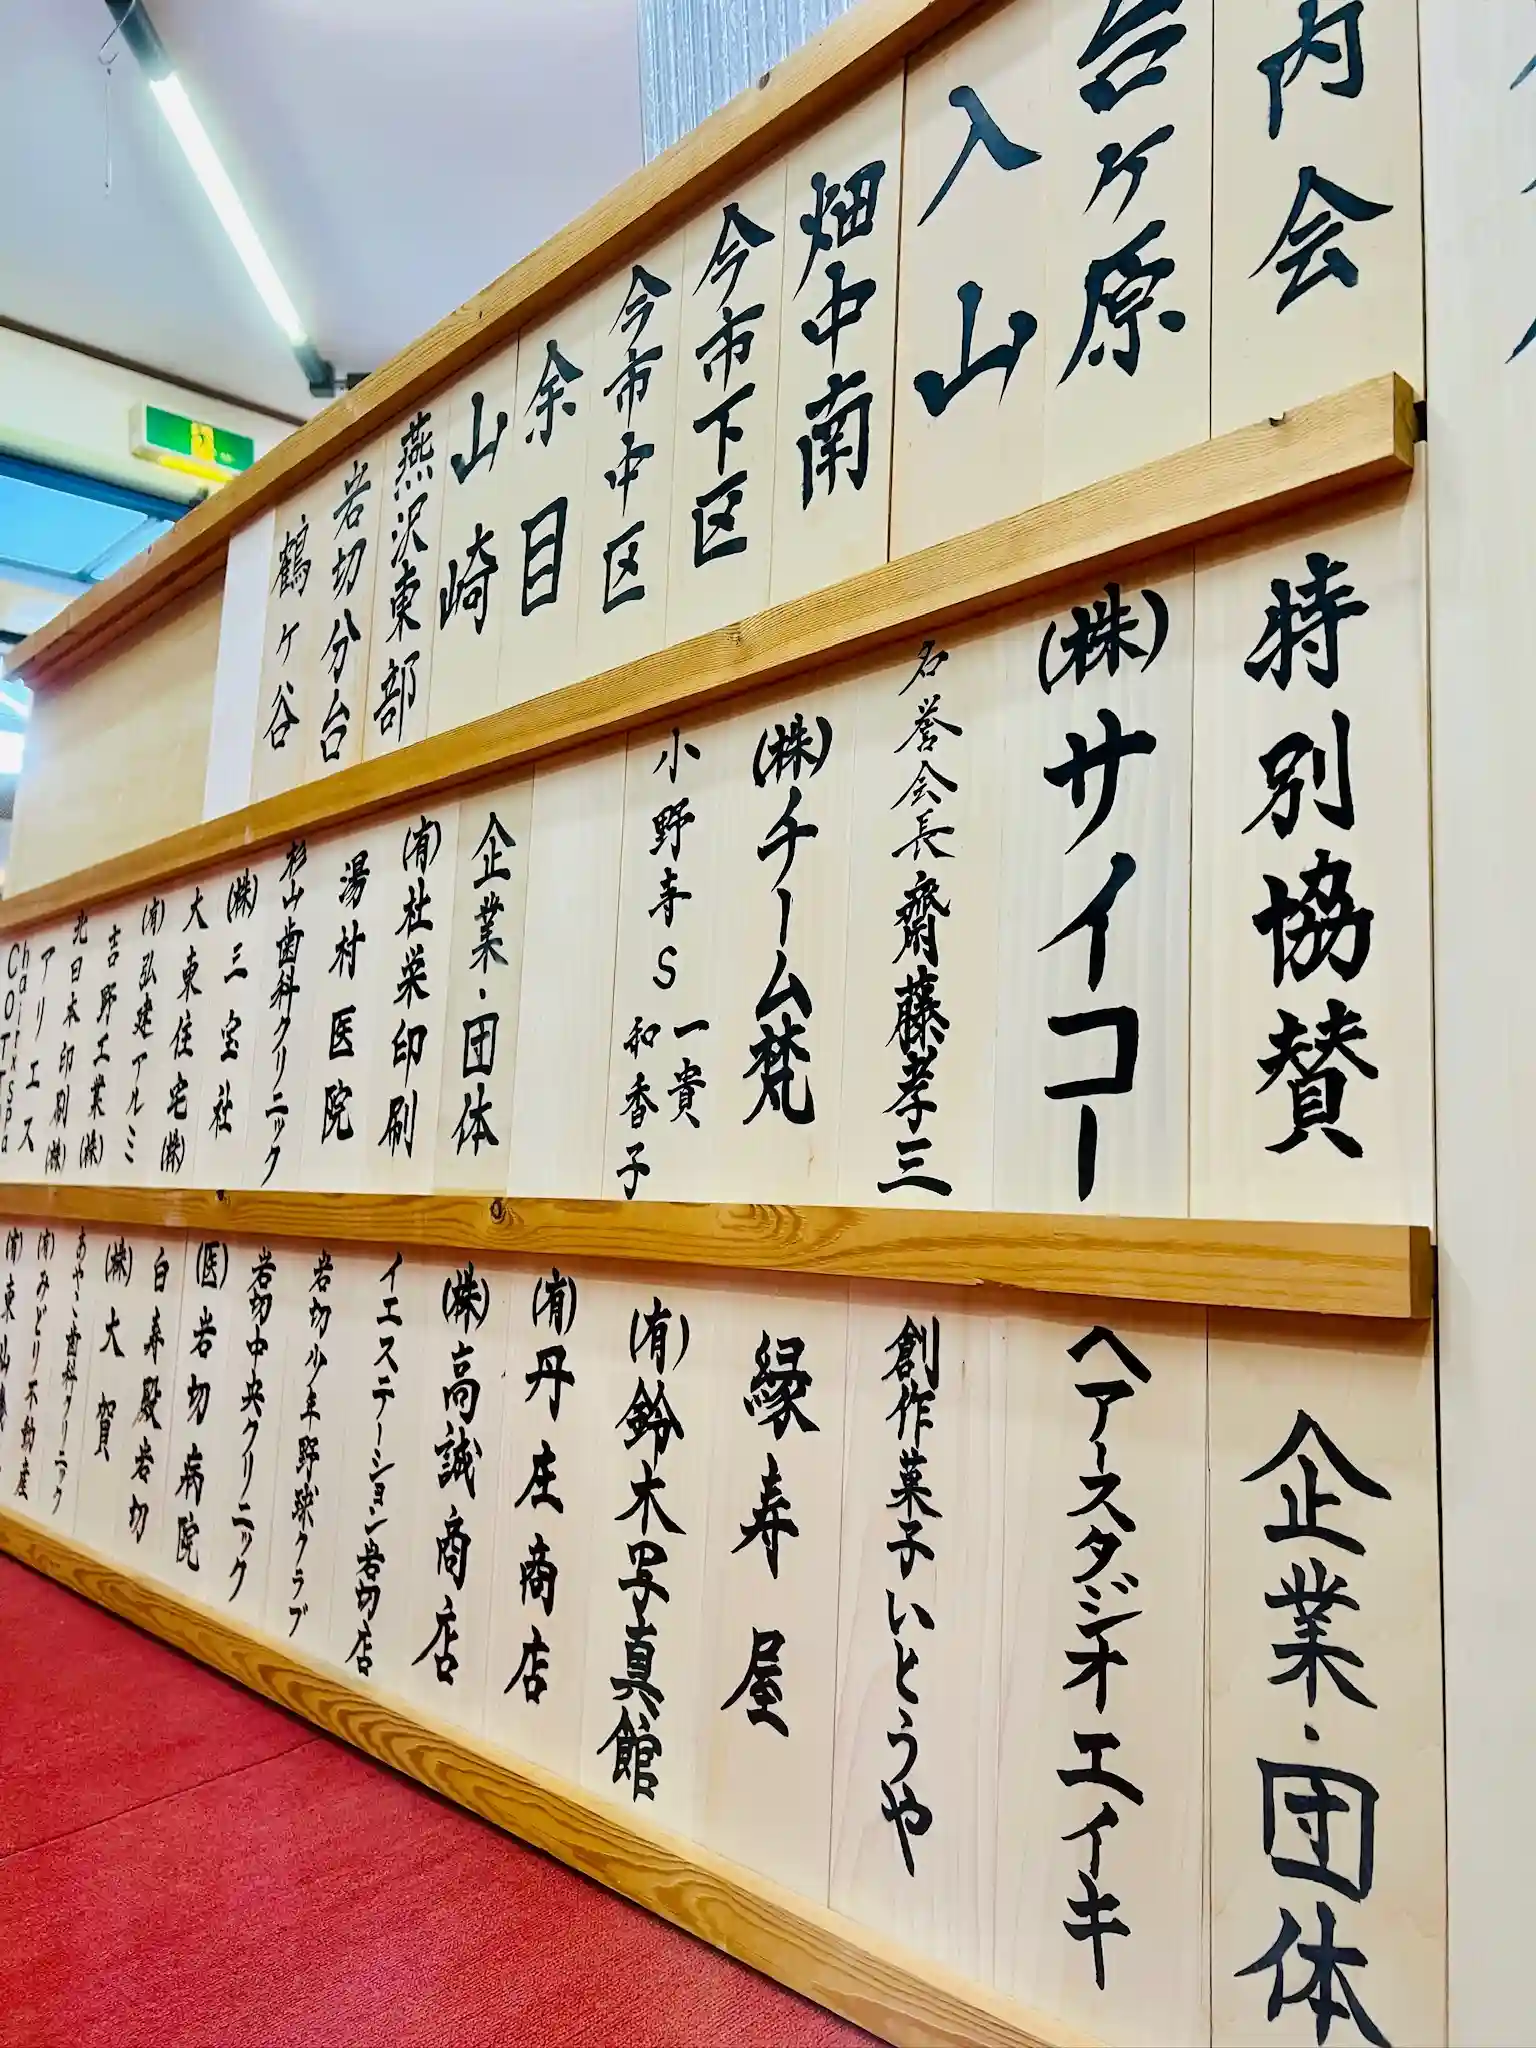 内会
台ヶ原
入山
畑中南
今市下区
今市中区
余目
山崎
燕沢東部
岩切分台
鶴ヶ谷
特別協賛
(株)サイコー
名誉会長 齋藤孝三
(株)チーム梵
小野寺S 一貴
和香子
企業・団体
(有)杜栄印刷
湯村医院
杉山歯科クリニック
(株)三宝社
大東住宅(株)
(有)弘建アルミ
吉野工業(株)
北日本印刷(株)
アリエス
hair×spa
企業・団体
ヘアースタジオエイキ
創作菓子いとうや
縁寿屋
(有)鈴木写真館
(有)丹庄商店
(株)高誠商店
イエステーション岩切店
岩切少年野球クラブ
岩切中央クリニック
(医)岩切病院
白寿殿岩切
(株)大賀
あやこ歯科クリニック
(有)みどり不動産
(有)東山